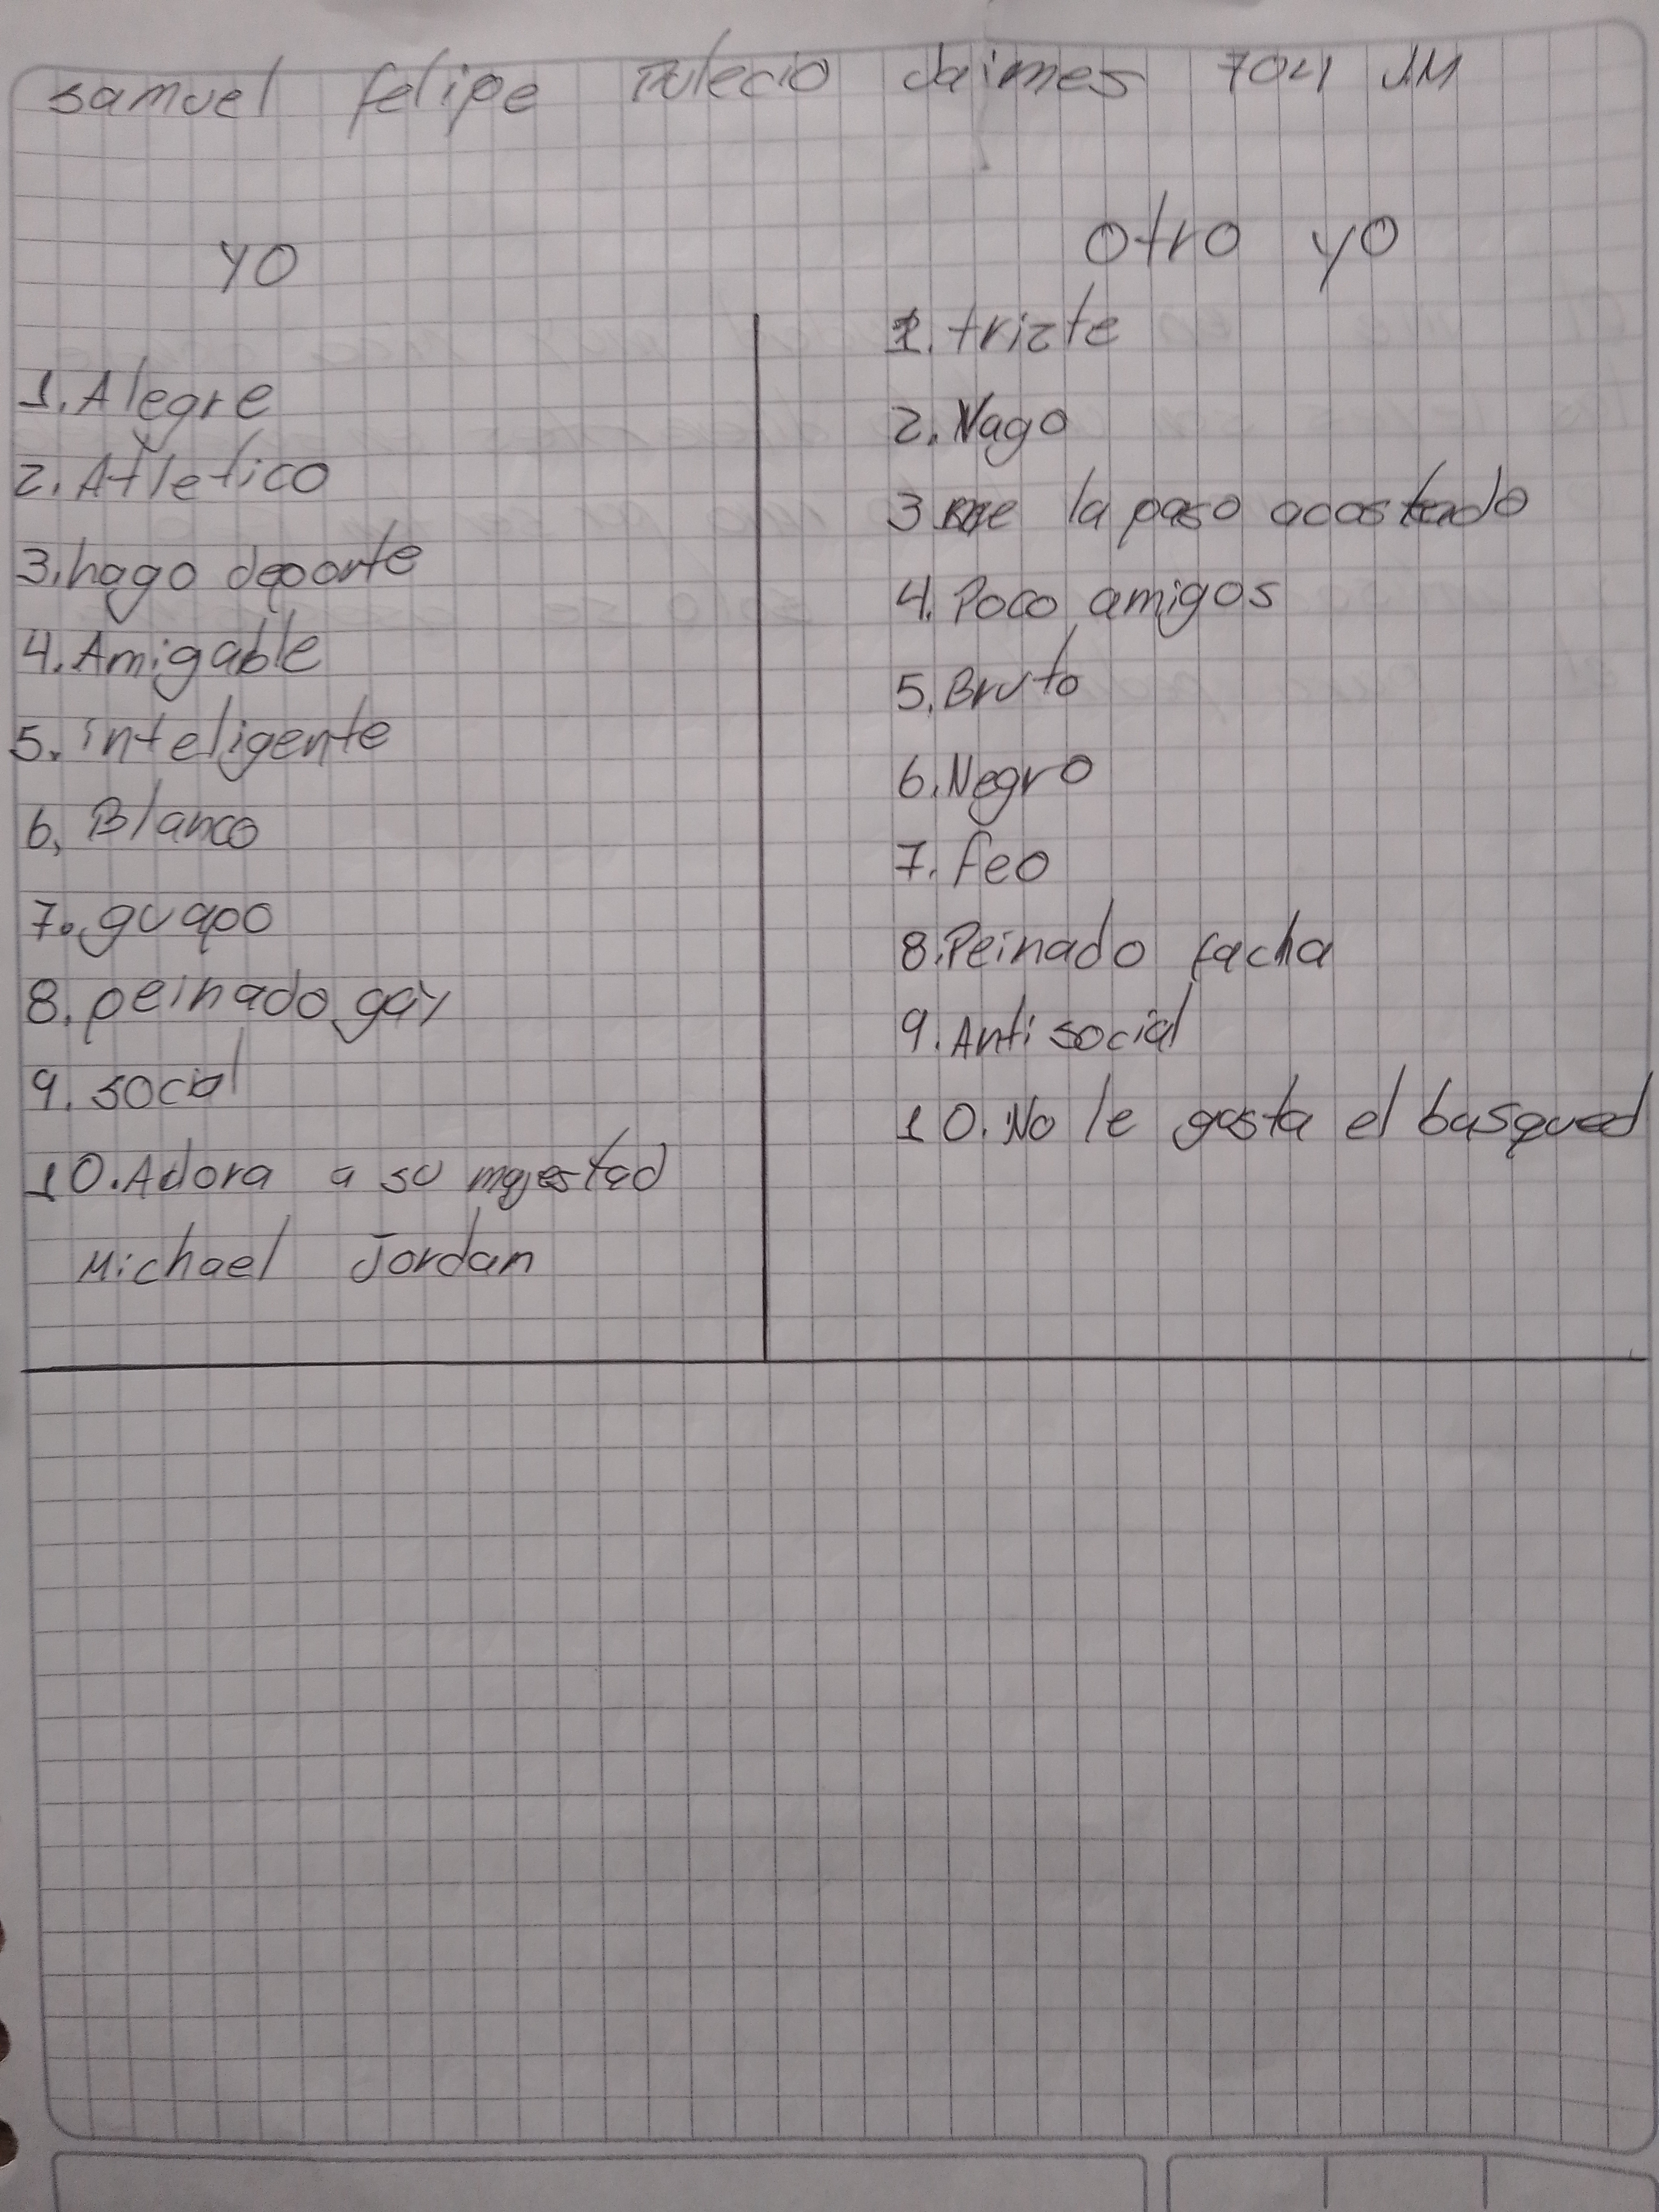 samuel felipe Tulecio Jaimes 704 JM
yo
1. Alegre
2. Atletico
3. hago deporte
4. Amigable
5. inteligente
6. Blanco
7. guapo
8. peinado gay
9. social
10. Adora a su majestad
Michael Jordan
otro yo
1. trizte
2. Vago
3 me la paso acostado
4. Poco amigos
5. Bruto
6. Negro
7. feo
8. Peinado facha
9. Anti social
10. No le gusta el basqued